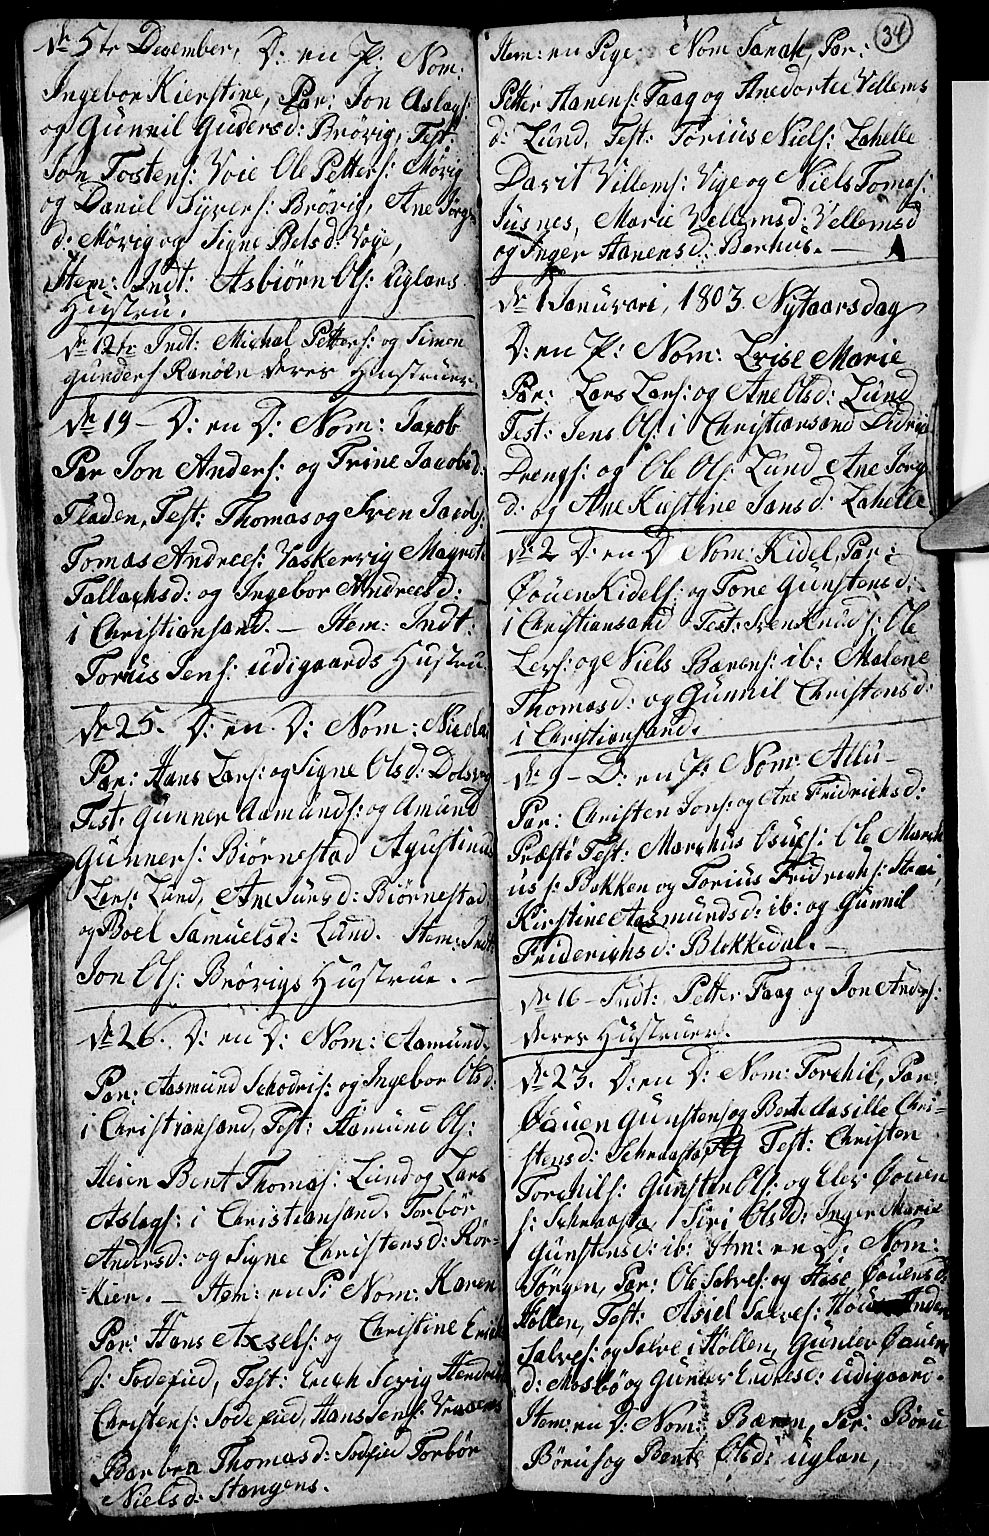 dr 5te December, D: en P. Nom:
Ingebor Kierstine, Par: Jon Aslags:
og Gunnil Gudersd: Brøvig, Test:
Jon Tostens: Voie Ole Petters: Møvig
og Daniel Syvers: Brøvig, Ane Jørgs
d: Møvig og Signe Belsd: Voye,
Item: Indt: Asbiørn Ols: uglans
Hustru.
dr 12te Indt: Michal Petters: og Simon
gunders Ranøen deres Hustruer.
dr 19 – D: en D: Nom: Jacob
Par Jon Anders: og Trine Jacobsd:
Fladen, Test: Thomas og Sven Jacobs:
Tomas Andrees: Vaskervig Magrete
Tallachsd: og Ingebor Andreesd:
i Christiansand. – Item: Indt:
Torius Jens: udigaards Hustru
dr 25. D: en D: Nom: Nicolai
Par: Hans Lars: og Signe Olsd: Dolsveg
Test: Gunner Aamunds: og Amund
Gunners: Biørnestad Agustinus
Lars: Lund, Ane Jursd: Biørnestad
og Boel Samuelsd: Lund. Item: Indt:
Jon Ols: Brøvigs Hustrue. –
dr 26. D: en D: Nom: Aamund,
Par: Aasmund Schodris: og Ingebor Olsd:
i Christiansand, Test: Aamund Ols:
Heien Bent Thomas: Lund og Lars
Aslags: i Christiansand. Torbør
Andersd: og Signe Christensd: Rør-
kier. – Item: en P: Nom: Karen
Par: Hans Axsels: og Christine Erichs
d: Sodefied, Test: Erich Sevig Hendrich
Christens: Sodefied, Hans Jens:
Barbra Thomasd: Sodefied Torbør
Nielsd: Stangens.
34
Item: en Pige. Nom Sarah, Par:
Petter Hanens: Faag og Anedortee Villems
d: Lund, Test: Torius Niels: Lahelle
Davit Villems: Vige og Niels Tomas:
Jusnes, Marie Vellemsd: Vellemsd
og Inger Hanensd: Berhus. –
dr 1 Januvari, 1803. Nytaarsdag
D: en P: Nom: Lvise Marie
Par: Lars Lars: og Ane Olsd: Lund
Test: Jens Ols: i Christiansand Didrich
Drengs: og Ole Ols: Lund, Ane Jørgs
d: og Ane Kiestine Jansd: Lahelle
dr 2 D: en D: Nom: Kidel, Par:
Øouen Kidels: og Tone Gunstensd:
i Christiansand Test: Sven Knuds: Ole
Lers: og Niels Barens: ib: Malene
Thomasd: og Gunnil Christensd:
i Christiansand.
dr 9 – D: en P: Nom: Allu –
Par: Christen Jons: og Ane Fridrichsd:
Præstø Test: Marchus Osuls: Ole March
us s: Bakken og Torius Fridrichs: Straai,
Kirstine Aasmundsd: ib: og Gunnil
Friderichsd: Blekkedal. –
dr 16 – Indt: Petter Faag og Jon Anders:
deres Hustruers.
dr 23. D: en D: Nom: Torchil, Par:
Øouen Gunstens og Bente Aasille Chri-
stensd: Schraasta Test: Christen
Torchils: Gunsten Ols: og Elev Øouen
s: Schraasta Siri Olsd: Inger Marie
Gunstensd: ib: Item: en D: Nom:
Jørgen, Par: Ole Salves: og Aase Øouensd:
Høllen, Test: Asiel Salves: Anders
Salves: og Salve i Høllen, Gunlev Øouen
d: Mosbø og Gunlev Endresd: udigaard.
Item: en D: Nom: Bæren, Par: Børu
Børus og Bente Olsd: uglan,